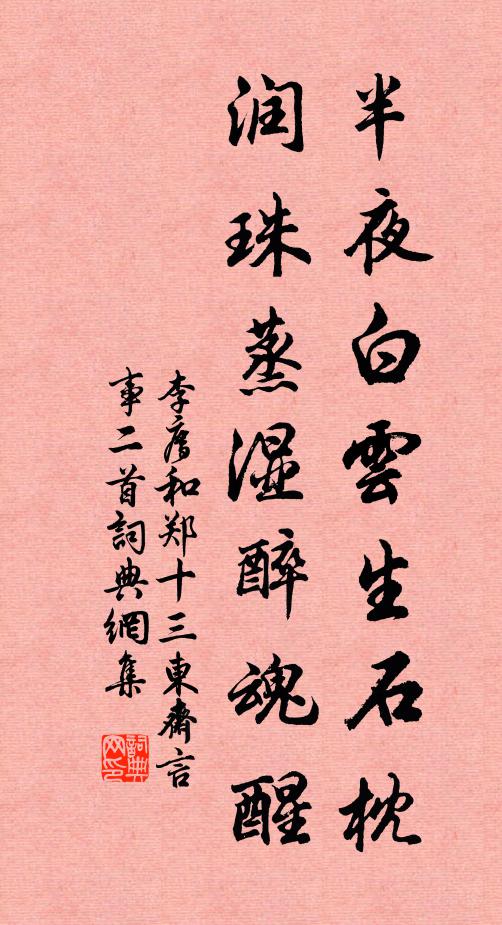 半夜白雲生石枕
润珠蒸湿醉魂醒
李廌和郑十三東齋言
事二首詞典網集
詞典
网印